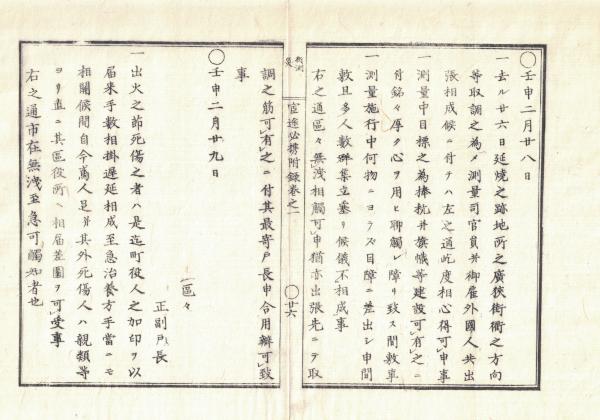 〇壬申二月廿八日
一去ル廿六日延燒之跡地所之廣狹街衢之方向
等取調之為メ測量司官員并御雇外國人共出
張相成候ニ付テハ左之通此度相心得可申事
一測量中目標之為捧杭并旗幟等建設可有之ニ
付銘々厚ク心ヲ用ヒ聊觸レ障リ致ス間敷事
一測量施行中何物ニヨラズ目障ニ差出シ申間
敷且多人數群集立塞リ候儀不相成事
右之通區々無洩相觸可申猶亦出張先ニテ取
官途必携附録巻之一
〇廿六
調之筋可有之ニ付其最寄戸長申合用辨可致
事
〇壬申二月廿九日
區々
正副戸長
一出火之節死傷之者ハ是迄町役人之加印ヲ以
届来手數相掛遅延相成至急治養方手當ニモ
相關候間自今鳶人足并其外死傷人ハ親類等
ヨリ直ニ其區役所へ相届差圖ヲ可受事
右之通市在無洩至急可觸知者也